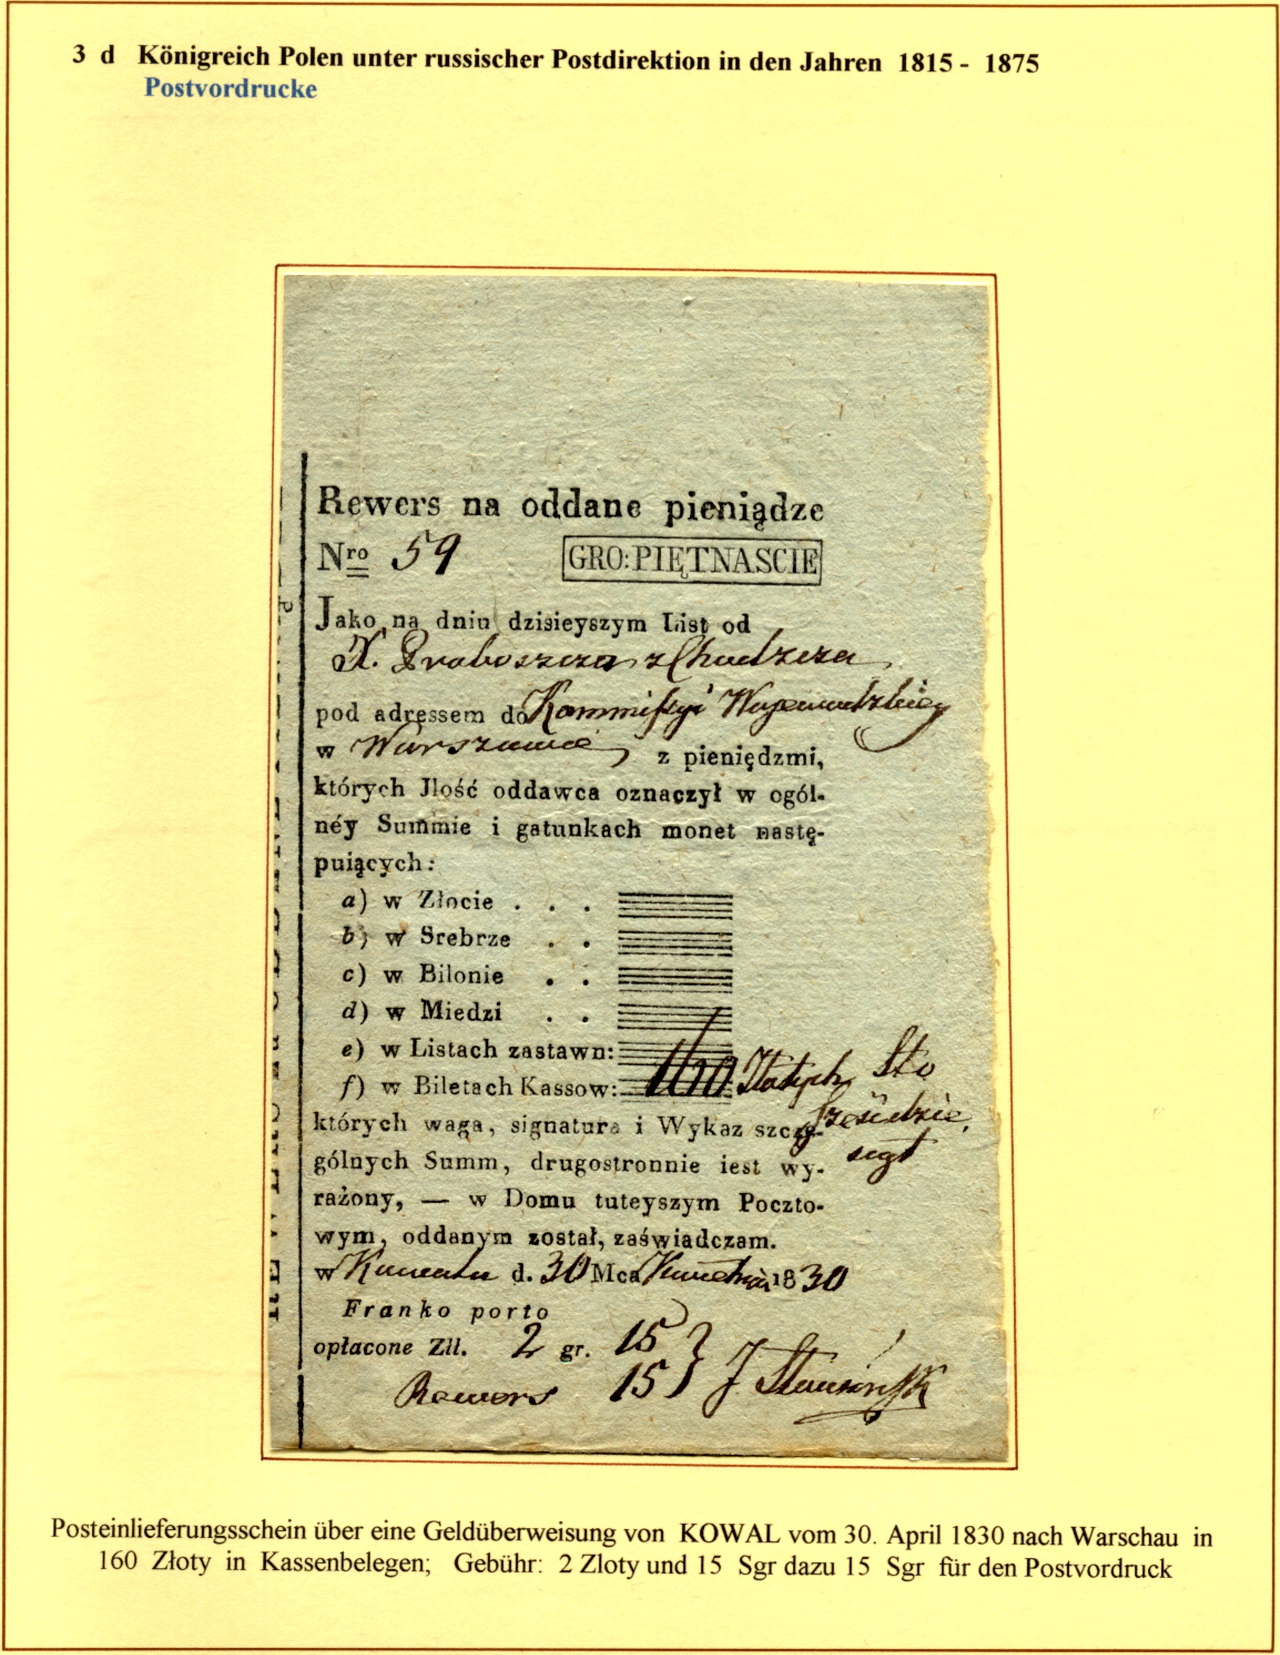 3 d Königreich Polen unter russischer Postdirektion in den Jahren 1815 - 1875
Postvordrucke
Rewers na oddane pieniądze
Nro 59 GRO: PIĘTNASCIE
Jako na dniu dzisieyszym List od
X. Proboszcza z Chodzcza
pod adressem do Kommissyi Wojewodzkiey
w Warszawie z pieniędzmi,
których Jlość oddawca oznaczył w ogól-
néy Summie i gatunkach monet nastę-
puiących:
a) w Złocie . . .
b) w Srebrze . .
c) w Bilonie . .
d) w Miedzi . .
e) w Listach zastawn:
f) w Biletach Kassow: 160 Złotych Sto
Sześćdzie
których waga, signatura i Wykaz szcze-
siąt
gólnych Summ, drugostronnie iest wy-
rażony, — w Domu tuteyszym Poczto-
wym, oddanym został, zaświadczam.
w d. 30 Mca Kwietnia 1830
Franko porto
opłacone Zll. 2 gr. 15
Rewers 15 } J
Posteinlieferungsschein über eine Geldüberweisung von KOWAL vom 30. April 1830 nach Warschau in
160 Złoty in Kassenbelegen; Gebühr: 2 Zloty und 15 Sgr dazu 15 Sgr für den Postvordruck